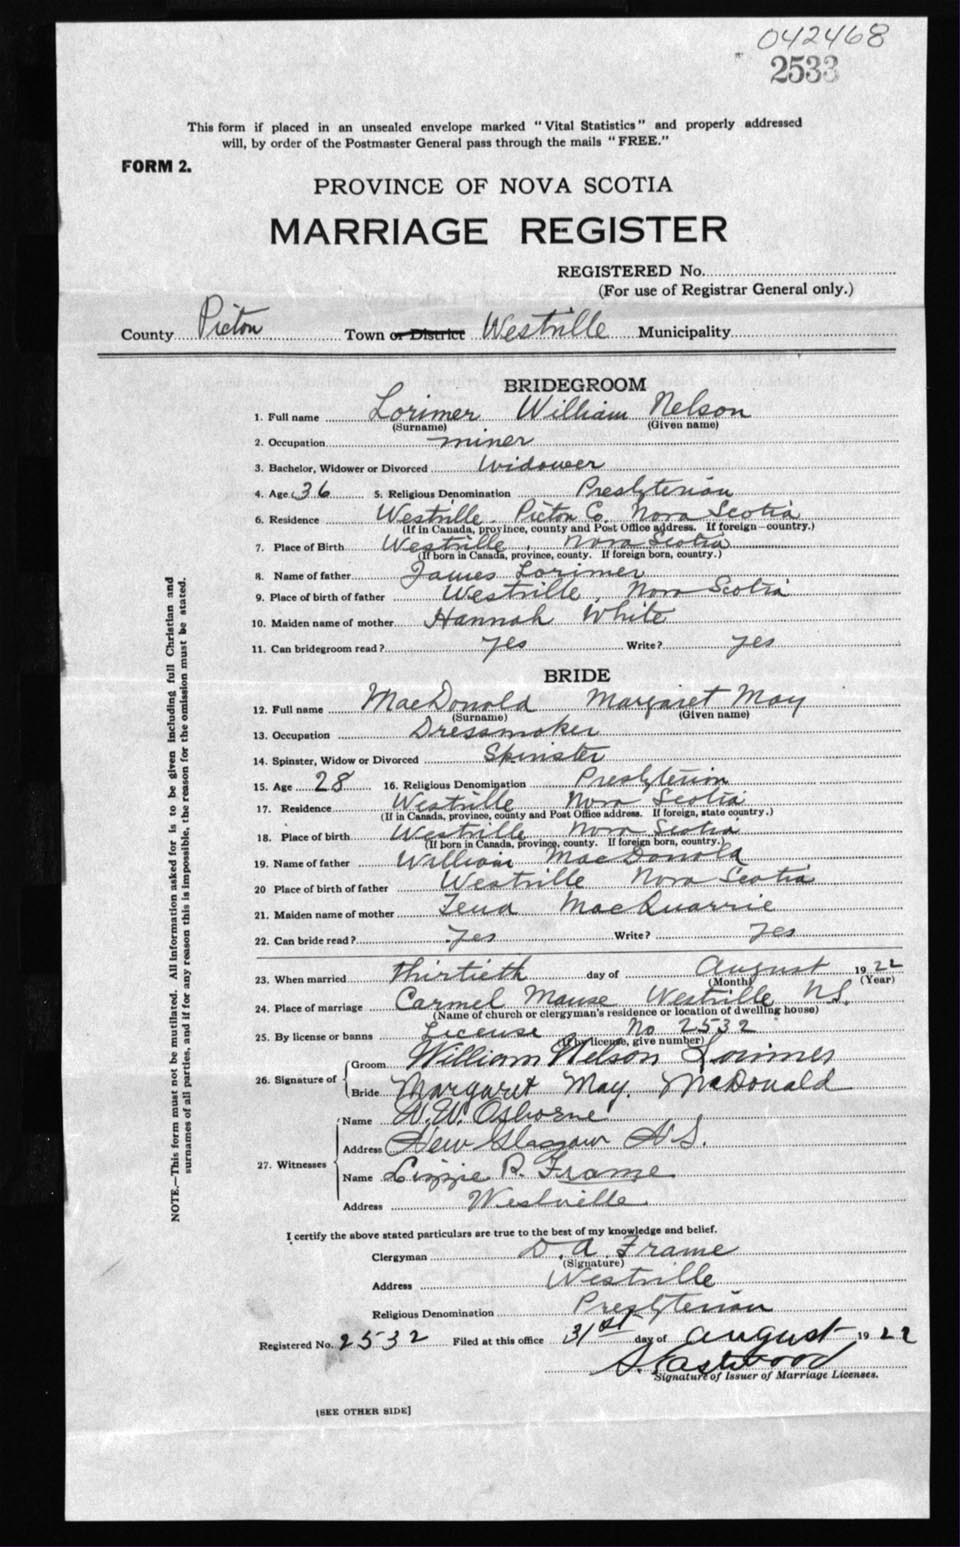 042468
2533
This form if placed in an unsealed envelope marked "Vital Statistics" and properly addressed
will, by order of the Postmaster General pass through the mails "FREE."
FORM 2.
PROVINCE OF NOVA SCOTIA
MARRIAGE REGISTER
REGISTERED No.
(For use of Registrar General only.)
County Picton Town or District Westville Municipality
BRIDEGROOM
1. Full name Lorimer William Nelson
(Surname) (Given name)
2. Occupation miner
3. Bachelor, Widower or Divorced Widower
4. Age 36 5. Religious Denomination Presbyterian
6. Residence Westville Picton Co. Nova Scotia
(If in Canada, province, county and Post Office address. If foreign—country.)
7. Place of Birth Westville, Nova Scotia
(If born in Canada, province, county. If foreign born, country.)
8. Name of father James Lorimer
9. Place of birth of father Westville, Nova Scotia
10. Maiden name of mother Hannah White
11. Can bridegroom read? yes Write? yes
BRIDE
12. Full name MacDonald Margaret May
(Surname) (Given name)
13. Occupation Dressmaker
14. Spinster, Widow or Divorced Spinster
15. Age 28 16. Religious Denomination Presbyterian
17. Residence Westville Nova Scotia
(If in Canada, province, county and Post Office address. If foreign, state country.)
18. Place of birth Westville Nova Scotia
(If born in Canada, province, county. If foreign born, country.)
19. Name of father William MacDonald
20 Place of birth of father Westville Nova Scotia
21. Maiden name of mother Tena MacQuarrie
22. Can bride read? yes Write? yes
23. When married thirtieth day of August 1922
(Month) (Year)
24. Place of marriage Carmel Manse Westville N.S.
(Name of church or clergyman's residence or location of dwelling house)
25. By license or banns License No 2532
(If by license, give number)
26. Signature of Groom William Nelson Lorimer
Bride Margaret May. McDonald
27. Witnesses Name W. W. Osborne
Address New Glasgow N.S.
Name Lizzie R. Frame
Address Westville
I certify the above stated particulars are true to the best of my knowledge and belief.
Clergyman D. A. Frame
(Signature)
Address Westville
Religious Denomination Presbyterian
Registered No. 2532 Filed at this office 31st day of August 1922
Eastwood
Signature of Issuer of Marriage Licenses.
[SEE OTHER SIDE]
NOTE.—This form must not be mutilated. All information asked for is to be given including full Christian and
surnames of all parties, and if for any reason this is impossible, the reason for the omission must be stated.